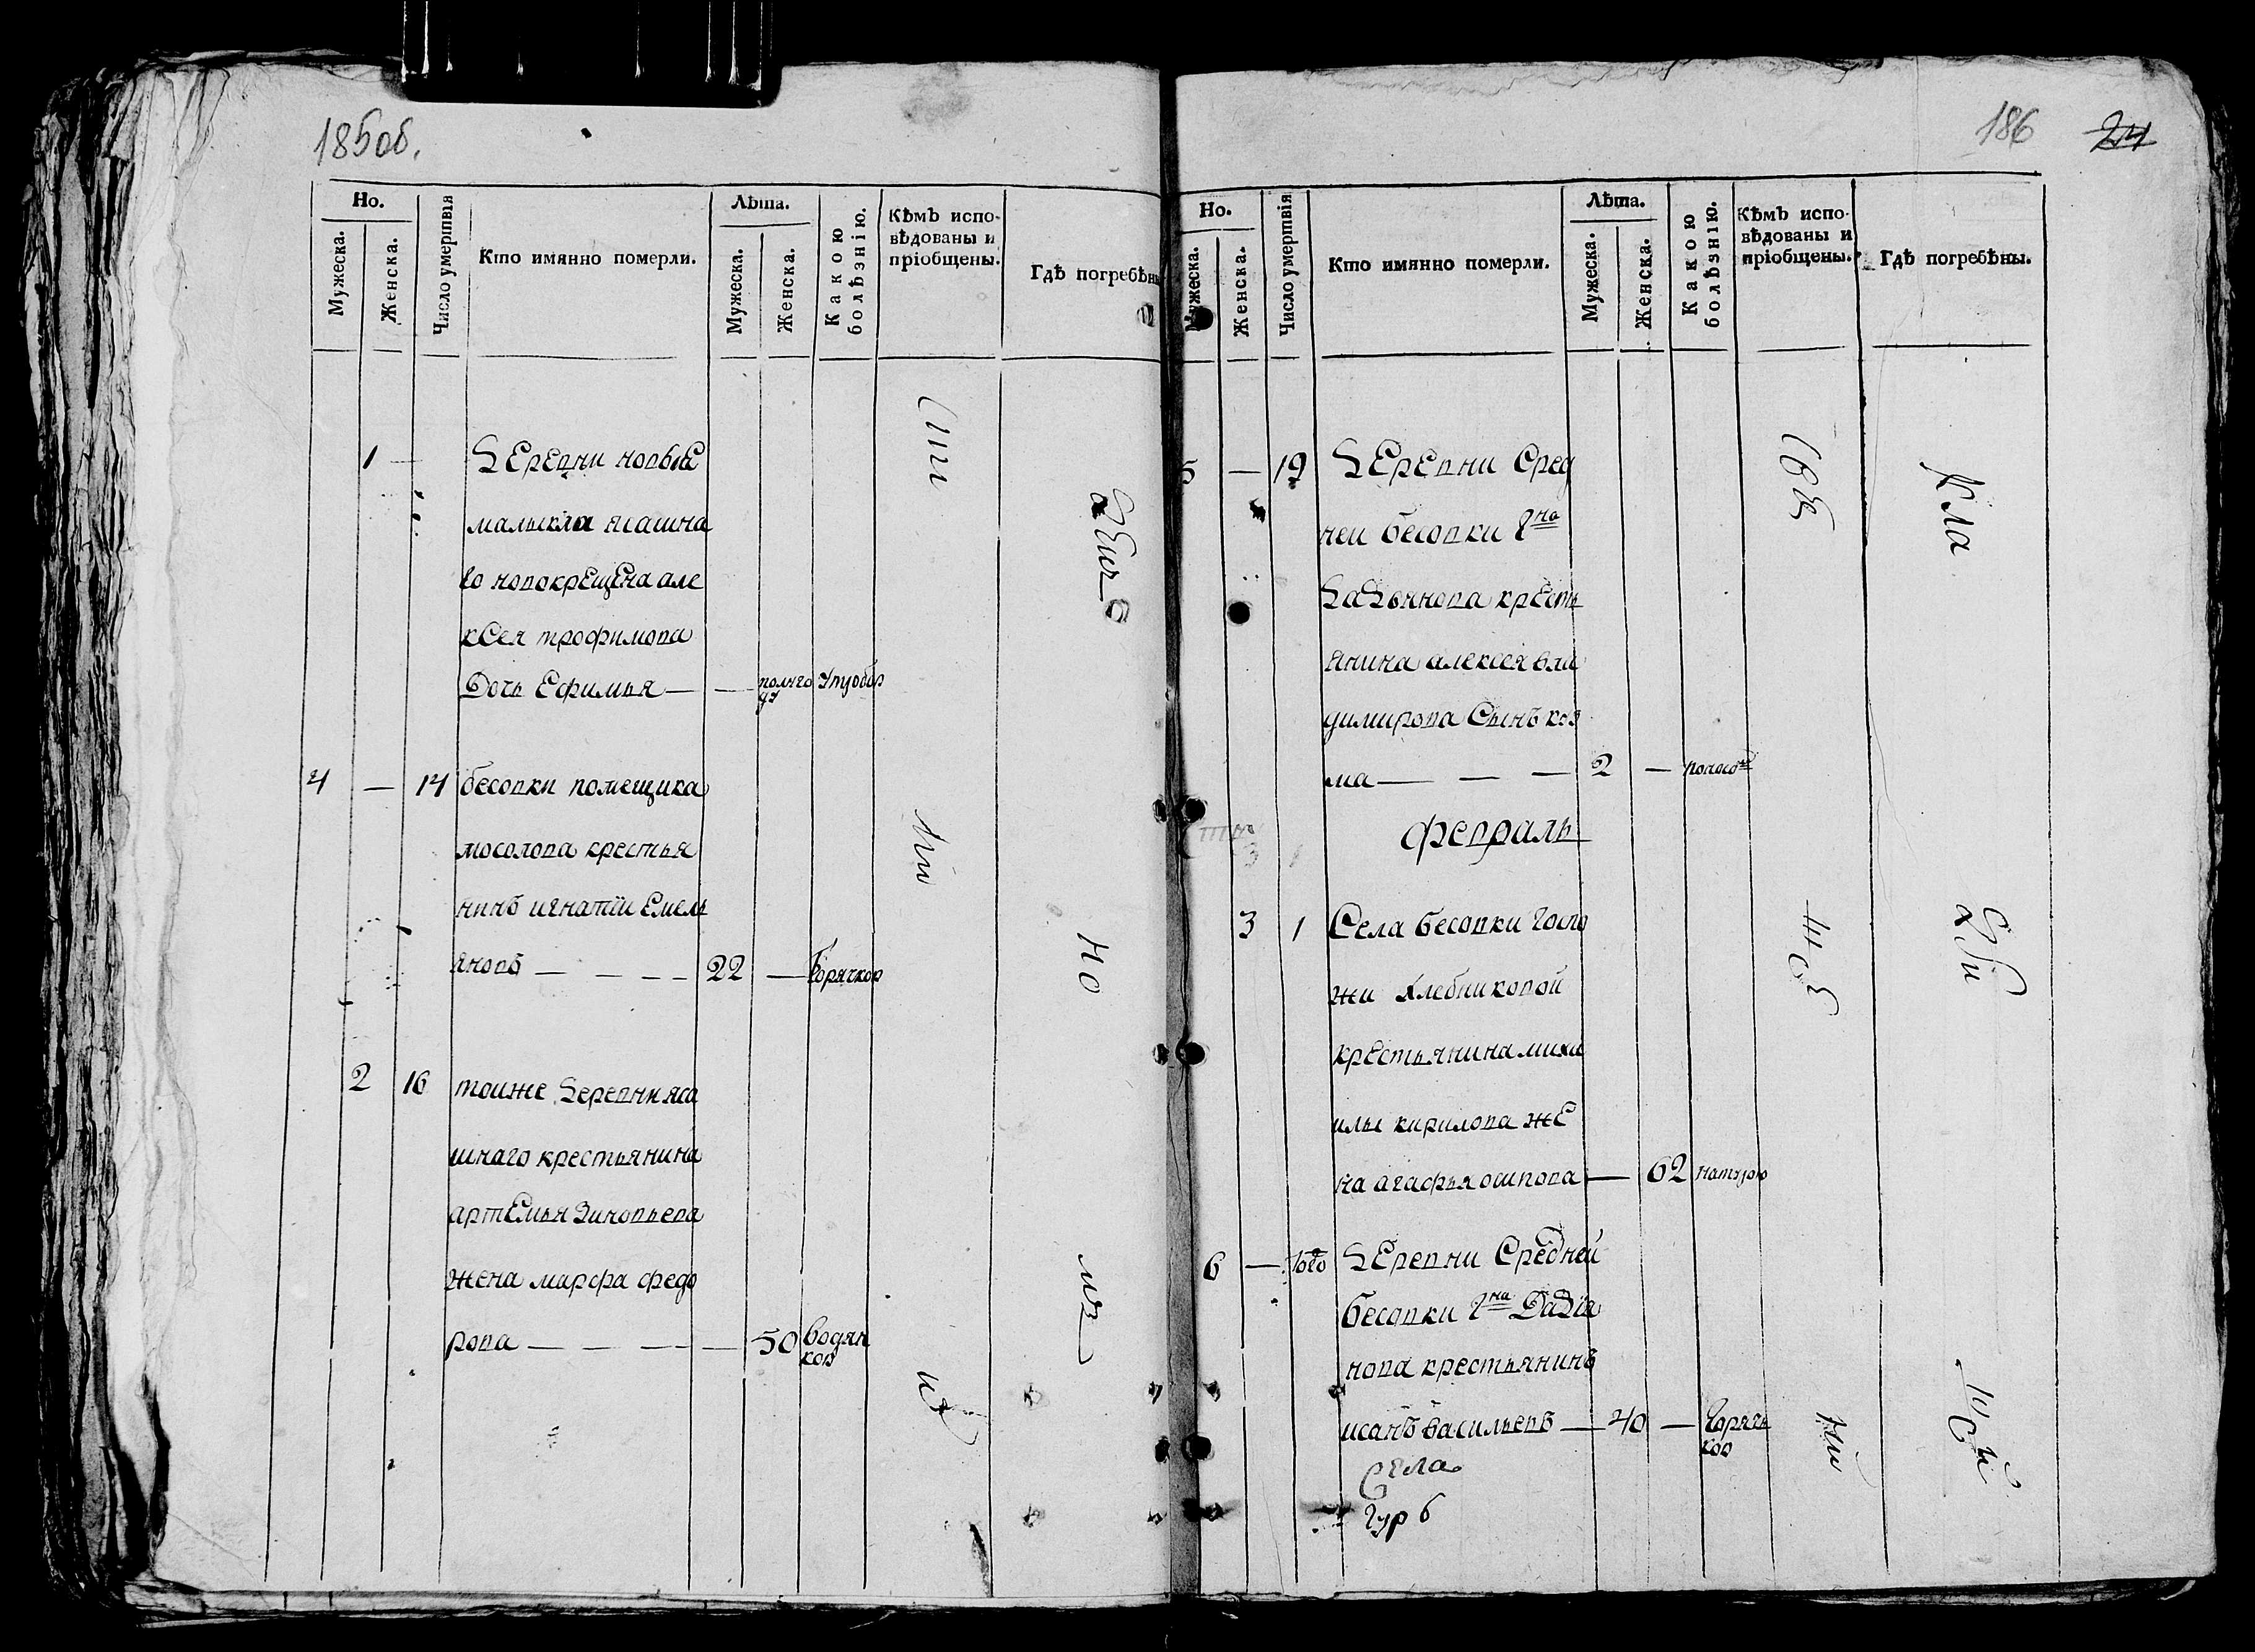 185об.
Но.
Мужеска.
Женска.
Число умертвія
Кто имянно померли.
Лѣта.
Мужеска.
Женска.
Какою болѣзнію.
Кѣмъ испо-
вѣдованы и
пріобщены.
Гдѣ погребѣны
1 — деревни новые
малыклы ясашна
го новокрещена але
ксея трофимова
дочь Ефимья — — полуго
ду утробою
4 — 14 бесовки помещика
мосолова крестья
нинъ игнатіи Емель
яновъ — — — — 22 — горячкою
2 16 тоиже деревни яса
шнаго крестьянина
артемья Зиновьева
жена марфа федо
рова — — — — — 50 водян
кою
186 24
Но.
Мужеска.
Женска.
Число умертвія
Кто имянно померли.
Лѣта.
Мужеска.
Женска.
Какою болѣзнію.
Кѣмъ испо-
вѣдованы и
пріобщены.
Гдѣ погребѣны.
5 — 19 деревни Сред
ней бесовки гна
крестъ
янина алексея вла
димирова Сынъ коз
ма — — — 2 —
февраль
3 1 Села бесовки госпо
жи хлебниковой
крестьянина миха
илы кирилова же
на агафья осипова — 62 натурою
6 — того деревни Средней
бесовки гна
нова крестьянинъ
исакъ васильевъ — 40 — горячь
кою
Села
гурб